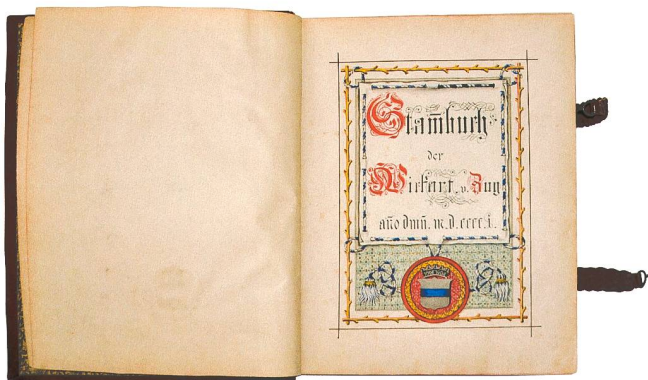 Stam̄buch
der
Wickart v. Zug
año Dmn̄. M.D.cccc.I.